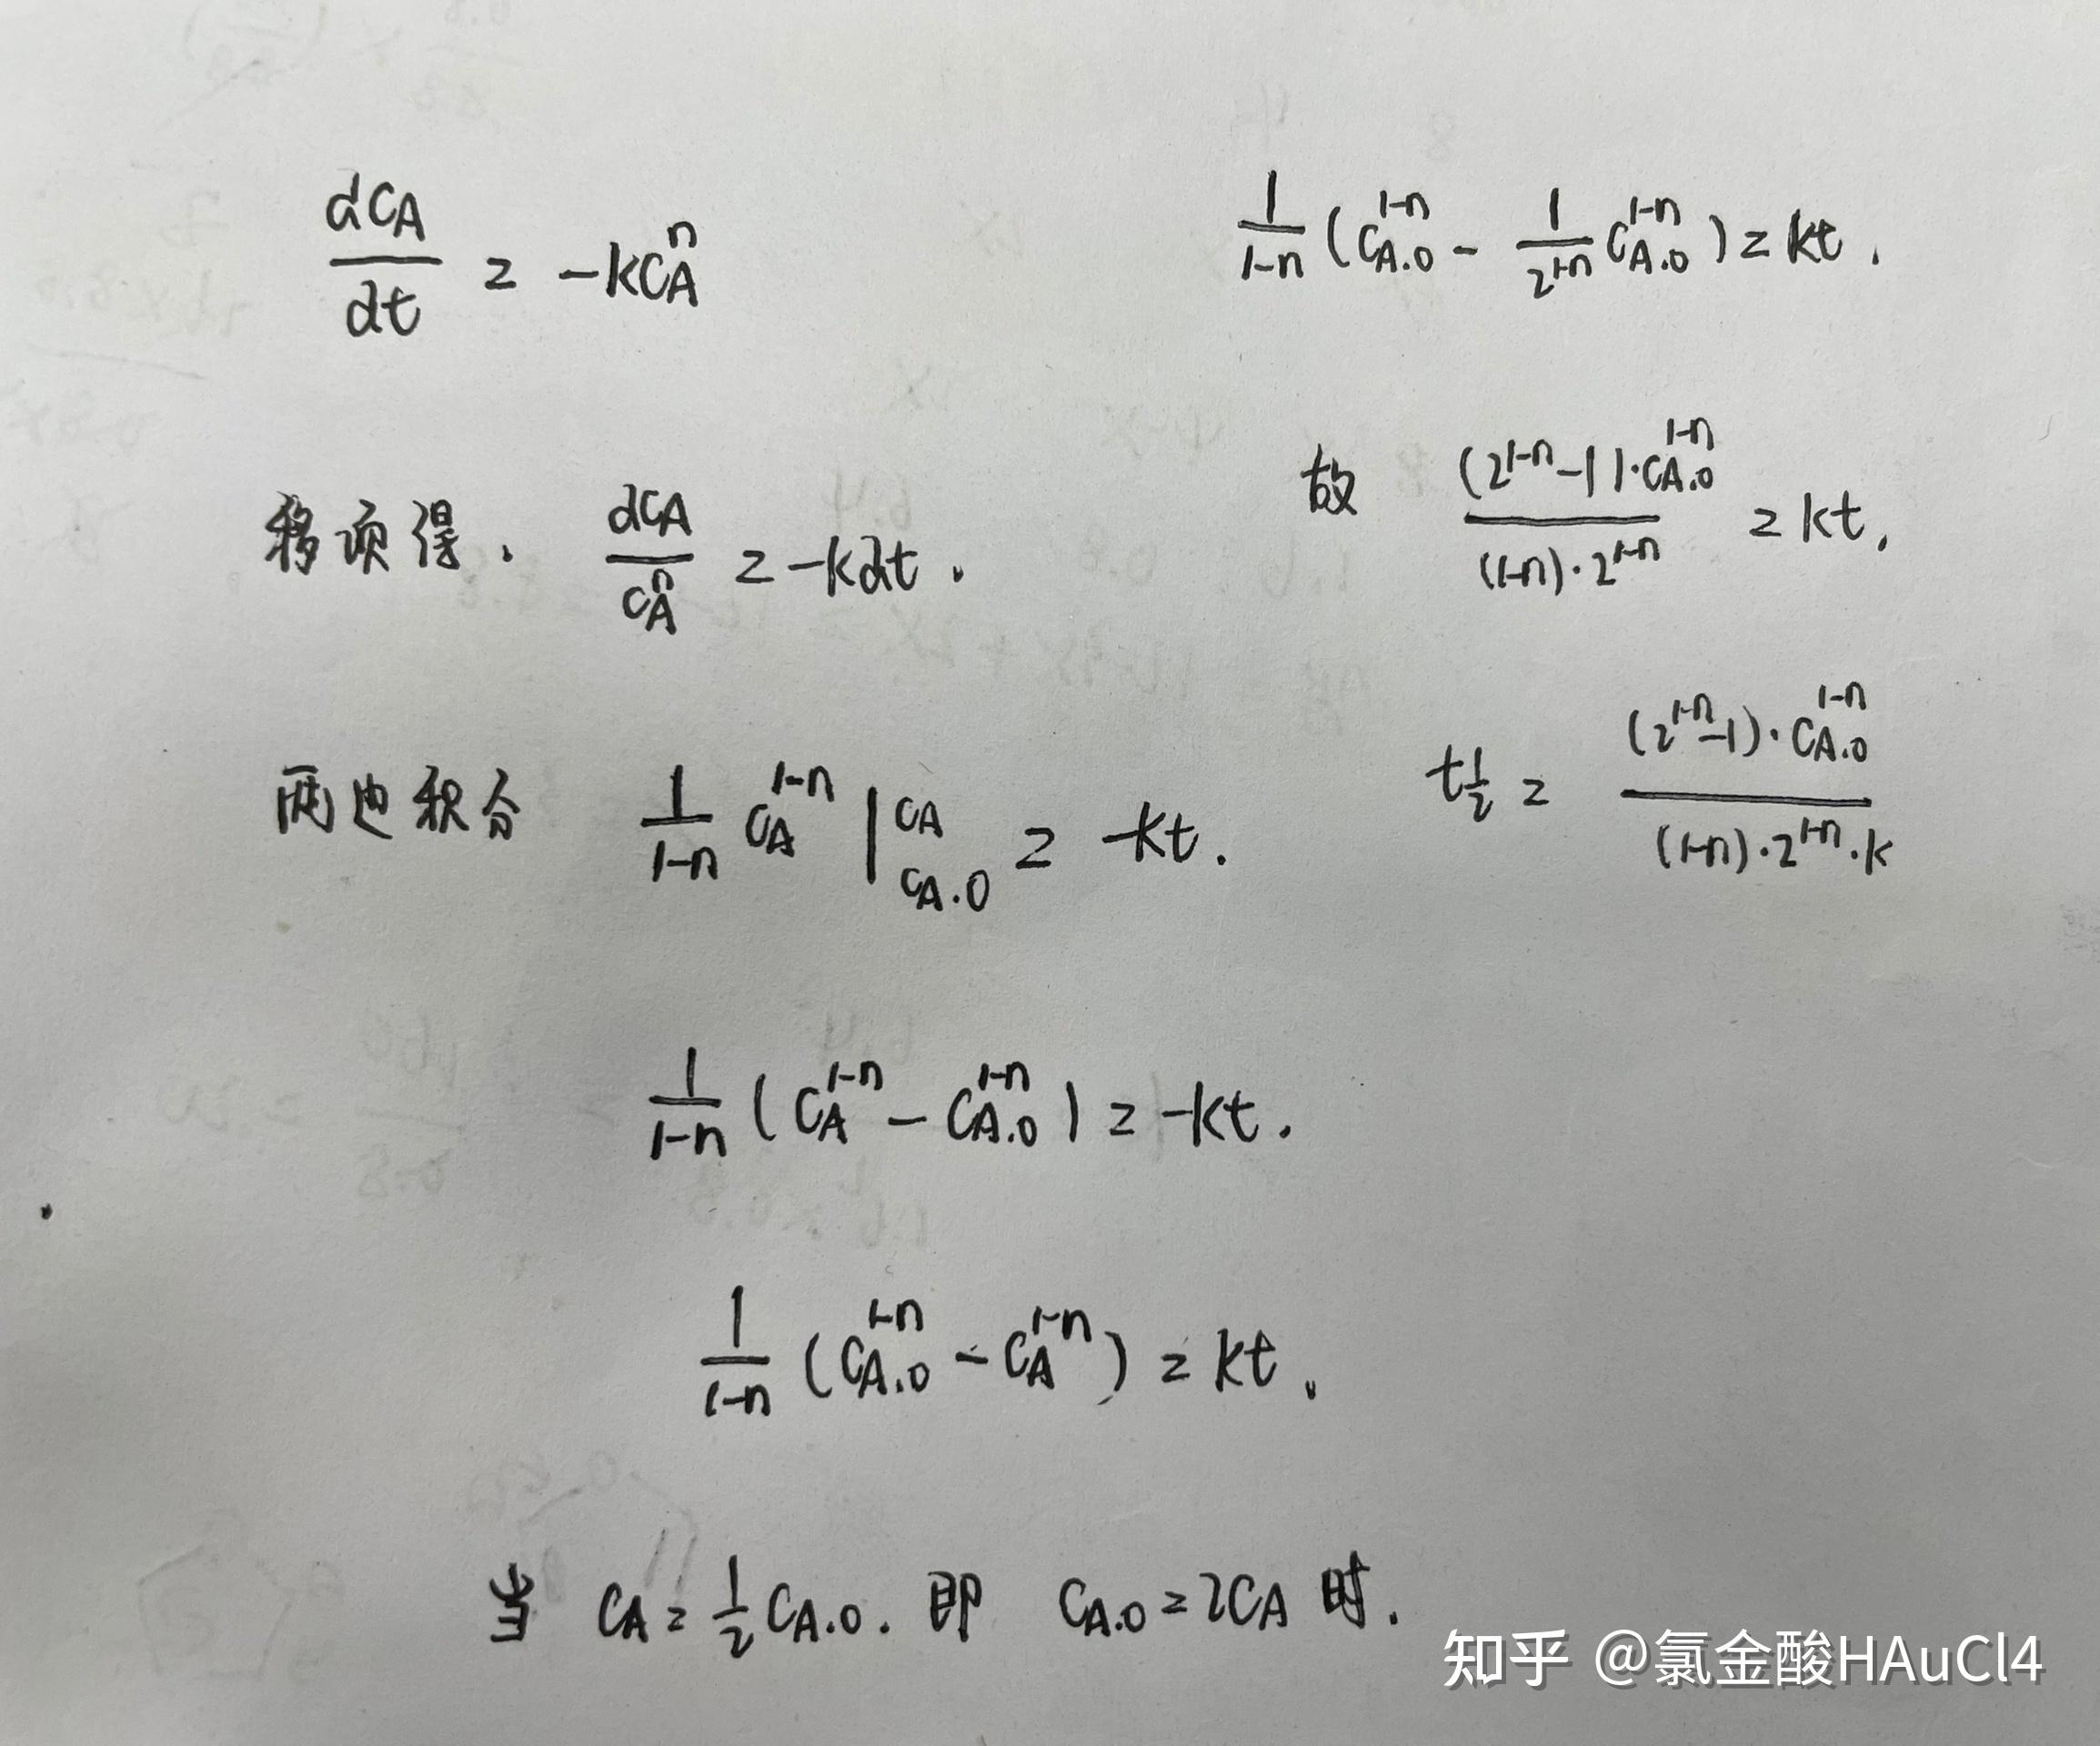 dC_A/dt = -kC_A^n
移项得. dC_A/C_A^n = -kdt.
两边积分 1/(1-n) C_A^(1-n) |_(C_A.0)^(C_A) = -kt.
1/(1-n) (C_A^(1-n) - C_A.0^(1-n)) = -kt.
1/(1-n) (C_A.0^(1-n) - C_A^(1-n)) = kt.
当 C_A = 1/2 C_A.0. 即 C_A.0 = 2C_A 时.
1/(1-n) (C_A.0^(1-n) - 1/2^(1-n) C_A.0^(1-n)) = kt.
故 (2^(1-n) - 1)·C_A.0^(1-n) / (1-n)·2^(1-n) = kt.
t1/2 = (2^(1-n) - 1)·C_A.0^(1-n) / (1-n)·2^(1-n)·k
知乎 @氯金酸HAuCl4